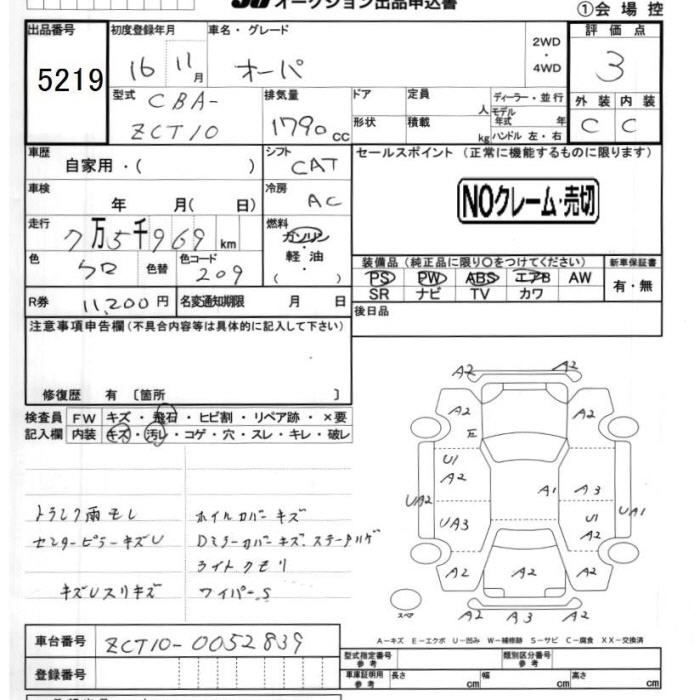 オークション出品申込書
①会場控
出品番号
5219
初度登録年月
16 11月
車名・グレード
オーパ
2WD
・
4WD
評価点
3
型式
CBA-
ZCT10
排気量
1790cc
ドア
定員
人
ディーラー・並行
モデル年式 年
形状
積載
kg
ハンドル 左・右
外装 内装
C C
車歴
自家用・( )
シフト
CAT
セールスポイント (正常に機能するものに限ります)
NOクレーム・売切
車検
年 月( 日)
冷房
AC
走行
7万5千969km
燃料
ガソリン
・
軽油
( )
色
クロ
色替
色コード
209
装備品 (純正品に限り○をつけてください)
新車保証書
PS PW ABS エアB AW
SR ナビ TV カワ
有・無
R券
11,200円
名変通知期限 月 日
後日品
注意事項申告欄 (不具合内容等は具体的に記入して下さい)
修復歴 有 〔箇所 〕
検査員記入欄
FW キズ・飛石・ヒビ割・リペア跡・×要
内装 キズ・汚レ・コゲ・穴・スレ・キレ・破レ
トランク雨モレ
センターピラーキズU
キズUスリキズ
ホイルカバーキズ
Dミラーカバーキズ.ステータハゲ
ライトクモリ
ワイパーS
A2 A2
A2 A2
E
U1
A2
A1 A3
UA2 UA3 U1 UA1
A2
A2 A2 A2
A2 A3 A2
スペア
A−キズ E−エクボ U−凹み W−補修跡 S−サビ C−腐食 XX−交換済
車台番号
ZCT10-0052839
登録番号
型式指定番号
参考
類別区分番号
参考
車庫証明用
参考
長さ cm
幅 cm
高さ cm